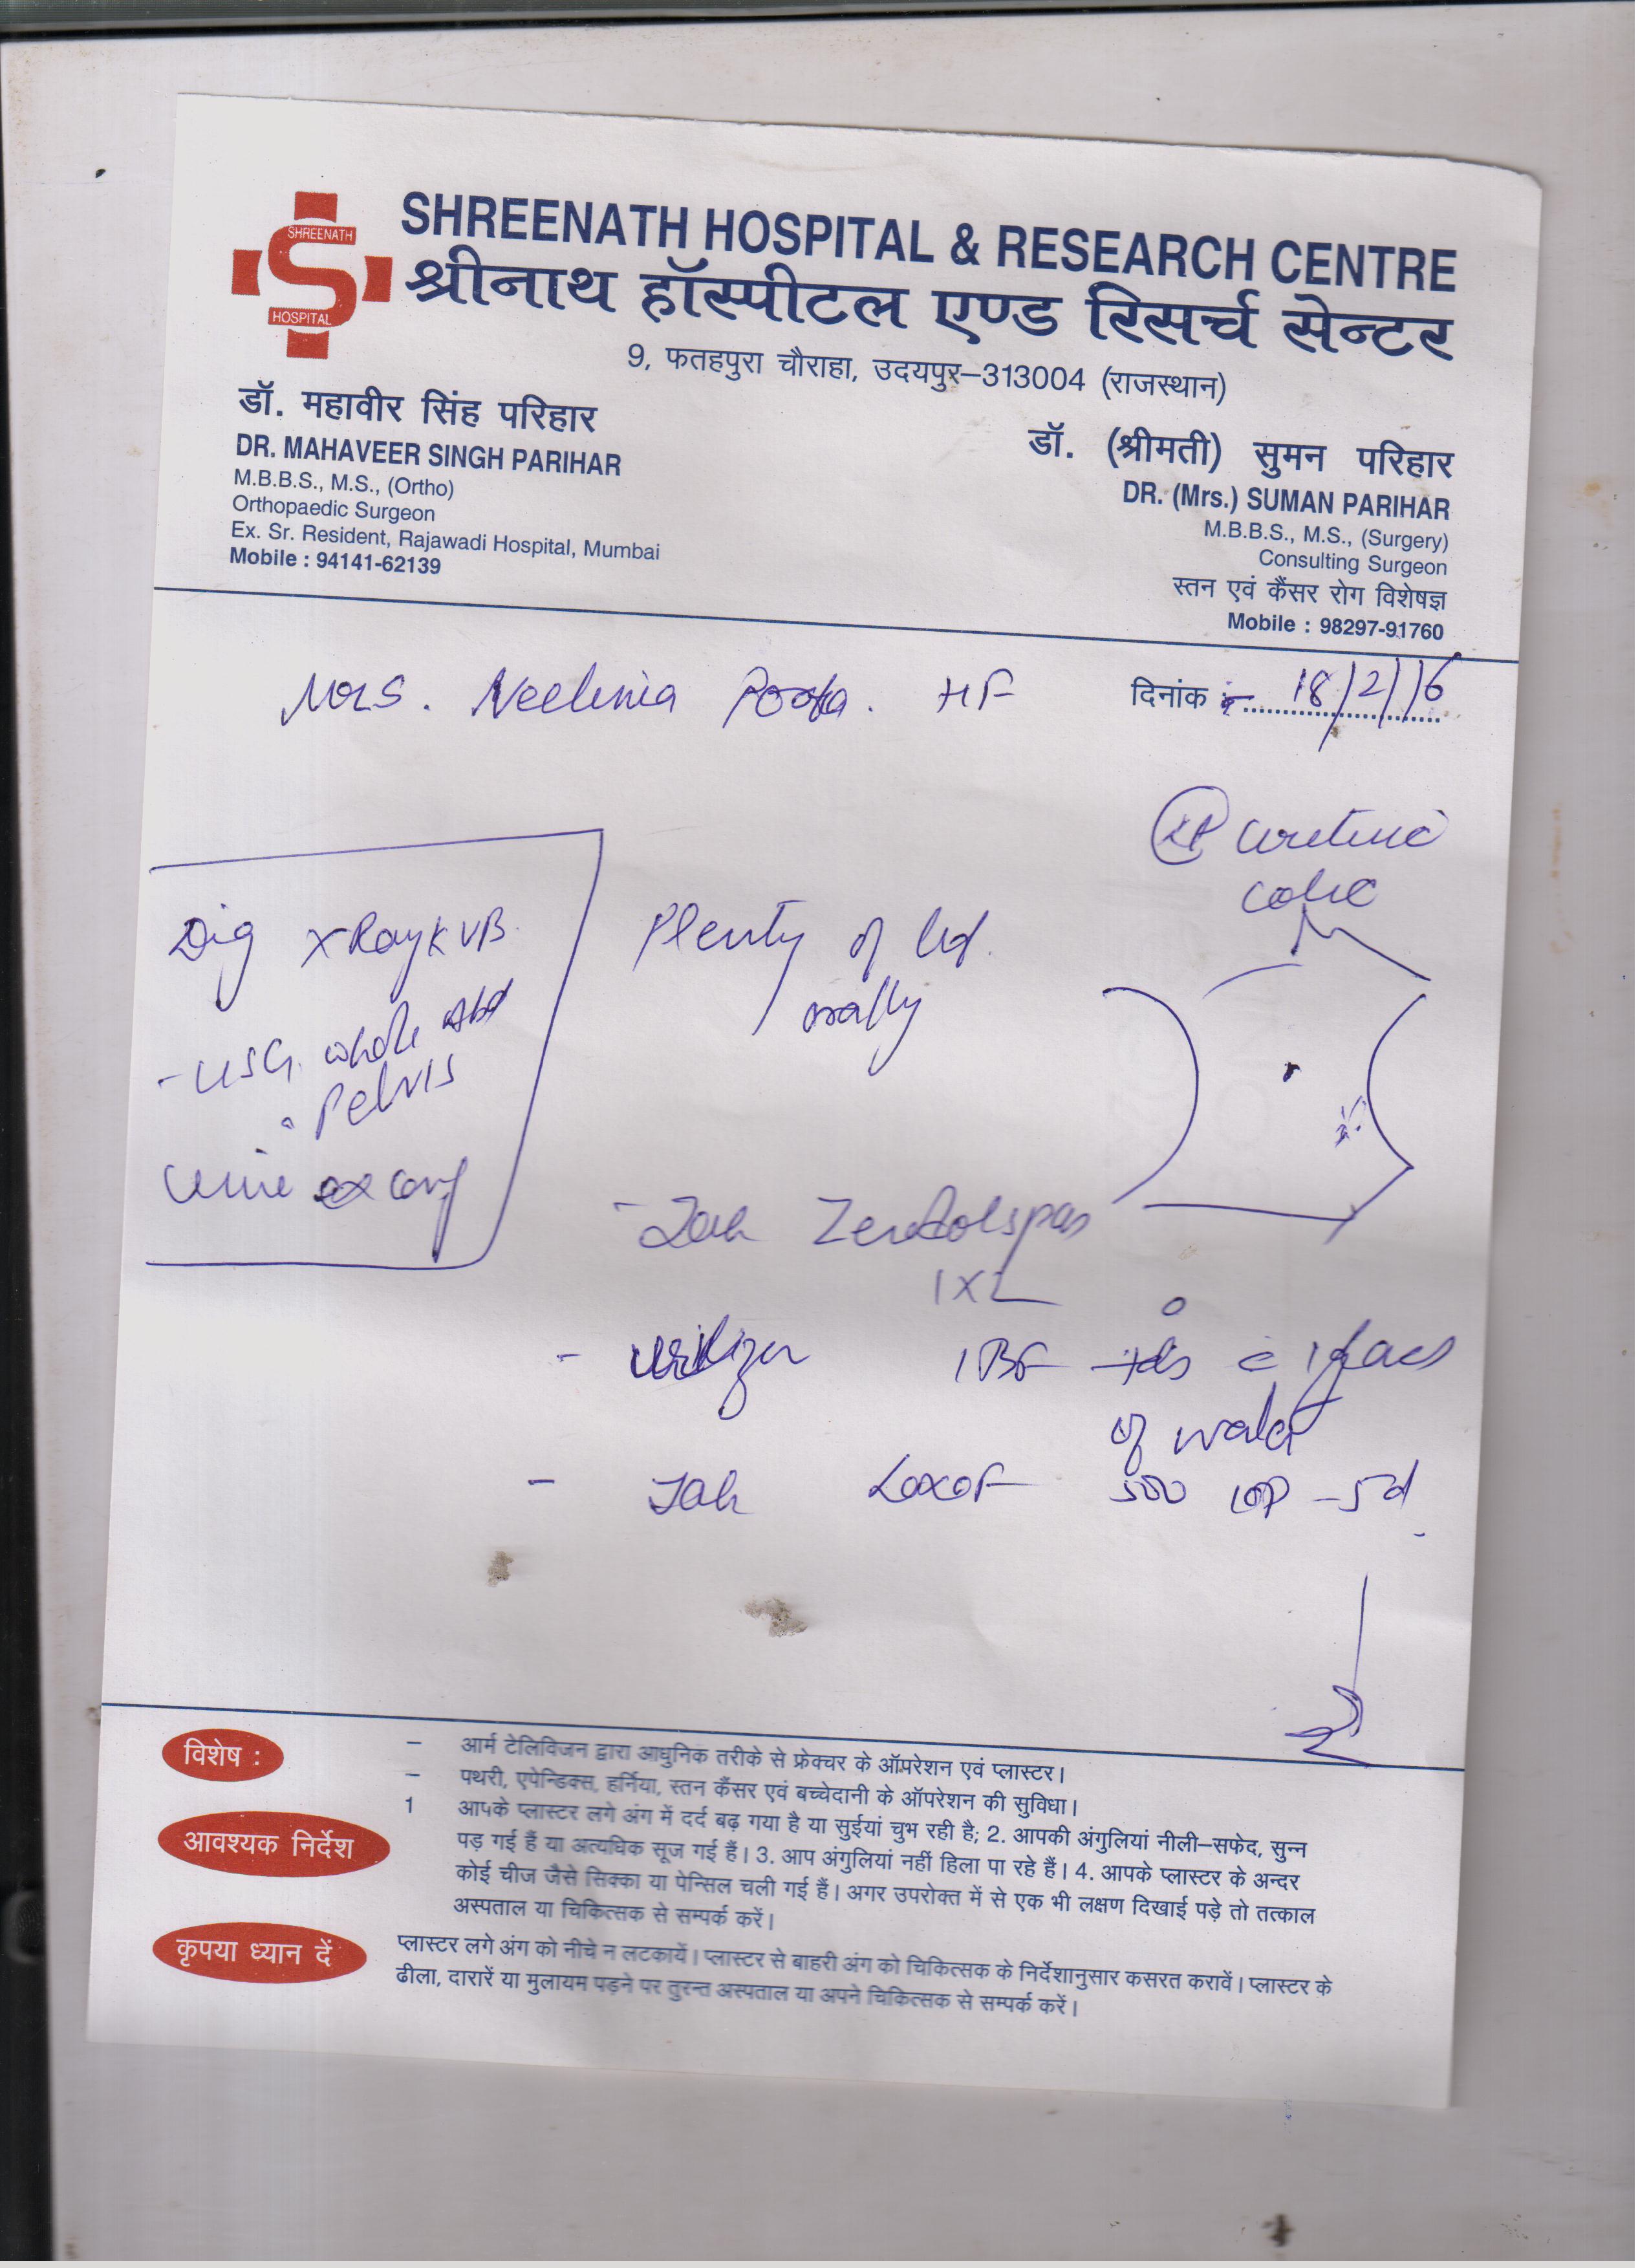 SHREENATH
HOSPITAL
SHREENATH HOSPITAL & RESEARCH CENTRE
श्रीनाथ हॉस्पीटल एण्ड रिसर्च सेन्टर
9, फतहपुरा चौराहा, उदयपुर–313004 (राजस्थान)
डॉ. महावीर सिंह परिहार
DR. MAHAVEER SINGH PARIHAR
M.B.B.S., M.S., (Ortho)
Orthopaedic Surgeon
Ex. Sr. Resident, Rajawadi Hospital, Mumbai
Mobile : 94141-62139
डॉ. (श्रीमती) सुमन परिहार
DR. (Mrs.) SUMAN PARIHAR
M.B.B.S., M.S., (Surgery)
Consulting Surgeon
स्तन एवं कैंसर रोग विशेषज्ञ
Mobile : 98297-91760
Mrs.
दिनांक :- 18/2/16
colic
Dig X Ray KUB
- USG. whole Abd
Pelvis
Urine
Plenty of
orally
- Tab Zerodolspas
1X2
- 1 BF tds c
of water
- Tab Loxof 500 - 5d
विशेष :
– आर्म टेलिविजन द्वारा आधुनिक तरीके से फ्रेक्चर के ऑपरेशन एवं प्लास्टर।
– पथरी, एपेन्डिक्स, हर्निया, स्तन कैंसर एवं बच्चेदानी के ऑपरेशन की सुविधा।
आवश्यक निर्देश
1 आपके प्लास्टर लगे अंग में दर्द बढ़ गया है या सुईयां चुभ रही है; 2. आपकी अंगुलियां नीली–सफेद, सुन्न
पड़ गई हैं या अत्यधिक सूज गई हैं। 3. आप अंगुलियां नहीं हिला पा रहे हैं। 4. आपके प्लास्टर के अन्दर
कोई चीज जैसे सिक्का या पेन्सिल चली गई हैं। अगर उपरोक्त में से एक भी लक्षण दिखाई पड़े तो तत्काल
अस्पताल या चिकित्सक से सम्पर्क करें।
कृपया ध्यान दें
प्लास्टर लगे अंग को नीचे न लटकायें। प्लास्टर से बाहरी अंग को चिकित्सक के निर्देशानुसार कसरत करावें। प्लास्टर के
ढीला, दारारें या मुलायम पड़ने पर तुरन्त अस्पताल या अपने चिकित्सक से सम्पर्क करें।